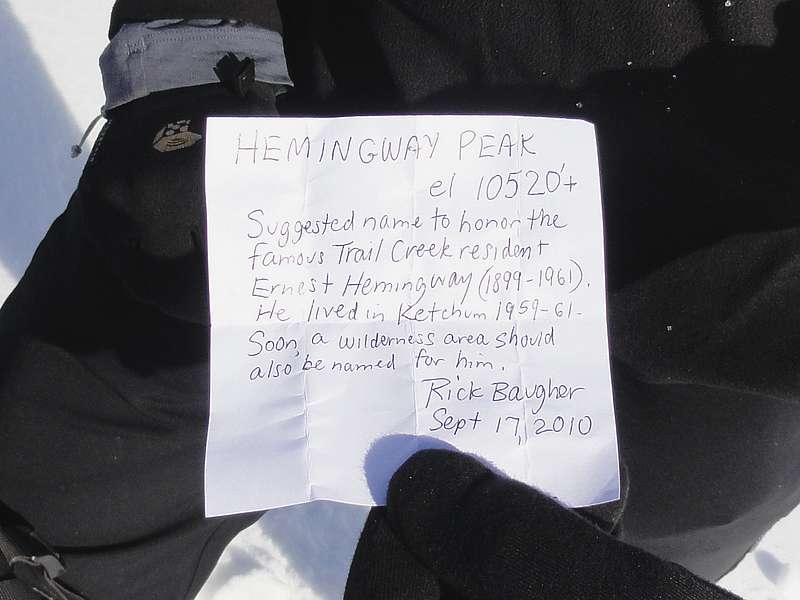 HEMINGWAY PEAK
el 10520'+
Suggested name to honor the
famous Trail Creek resident
Ernest Hemingway (1899-1961).
He lived in Ketchum 1959-61-
Soon, a wilderness area should
also be named for him.
Rick Baugher
Sept 17, 2010